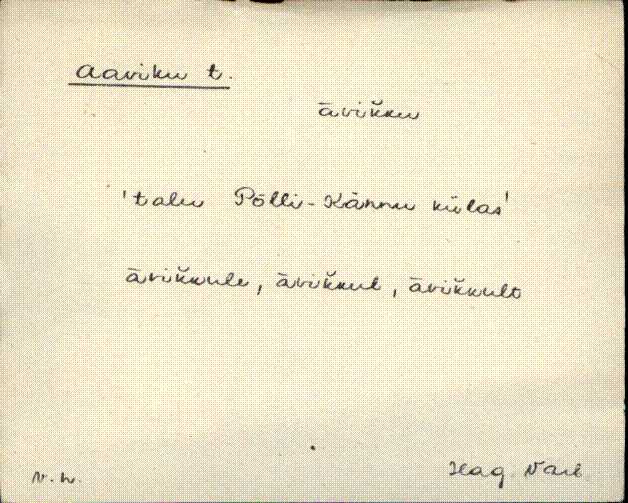 Aaviku t.
āvik̆ku
'talu Põlli-Kännu külas'
āvik̆kule, āvik̆kul, āvik̆kult
Hag